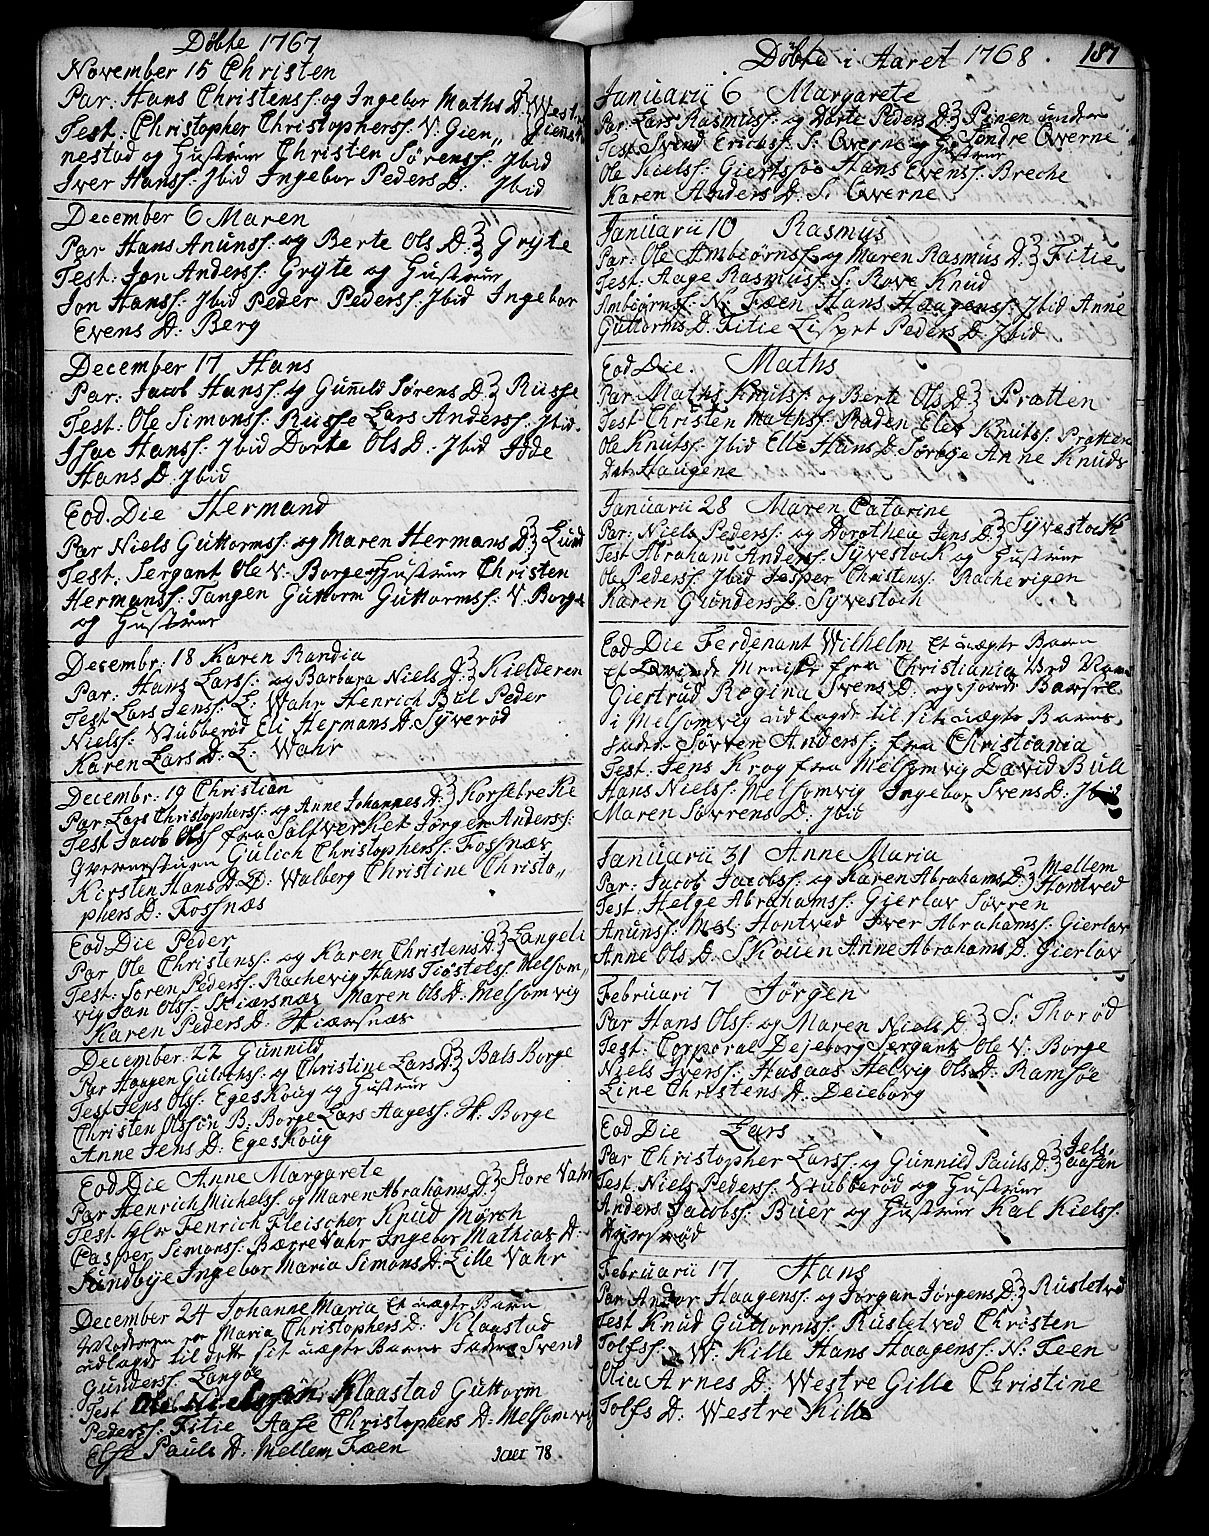 Döbte 1767
November 15 Christen
Par: Hans Christenss: og Ingebor Maths D. Westre
Test: Christopher Christopherss: V: Gien,, Gienst
nestad og Hustrue Christen Sörenss: Jbid
Iver Hanss: Jbid Ingebor Peders D: Jbid
December 6 Maren
Par Hans Anunss: og Berte Ols D. Gryte
Test: Jon Anderss: Gryte og Hustrue
Jon Hanss: Jbid Peder Pederss: Jbid Ingebor
Evens D: Berg
December 17 Hans
Par: Jacob Hanss: og Guñild Sörens D. Russe
Test: Ole Simonss: Russe Lars Anderss: Jbid.
Isac Hanss: Jbid Dorte Ols D: Jbid
Hans D. Jbid
Eod. Die Hermand
Par Niels Guttormss: og Maren Hermans D. Lund
Test: Sergant Ole V: Borge og Hustrue Christen
Hermanss: Tangen Guttorm Guttormss: V. Borge
og Hustrue
Decembr: 18 Karen Randia
Par: Hans Larss: og Barbara Niels D. Kielderen
Test Lars Jenss: L: Wahr Henrich Bul Peder
Nielss: Stubberöd Eli Hermans D. Syveröd
Karen Lars D. L: Wahr
Decembr: 19 Christian
Par Lars Christopherss: og Anne Johannes D. Korsebrekke
Test Jacob Olss fra Saltverket Jörgen Anderss:
Gverrestuen Gulich Christopherss: Fossnæs
Kirsten Hans D. D: Walberg Christine Christo,,
phers D: Fossnæs
Eod Die Peder
Par Ole Christenss: og Karen Christens D. Langeli
Test: Sören Pederss: Rachevig Hans Tiöstelss: Melsom,,
vig Jan Olss: Skiærsnæs Maren Ols D: Melsomvig
Karen Peders D: Skiærsnæs
December: 22 Gunnild
Par Haagen Gulichss: og Christine Lars D. Bals Borge
Test Jens Olss: Egeskoug og Hustrue
Christen Olssön B: Borge Lars Aagess: Sk: Borge
Anne Jens D: Egeskoug
Eod Die Anne Margarete
Par Henrich Michelss: og Maren Abrahams D. Store Vahr
Test: Hr Fenrich Fleischer Knud Mörch
Casper Simonss: Bærrevahr Ingebor Mathias D:
Sundbye Ingebor Maria Simons D: Lille Vahr
December 24 Johanne Maria et uægte Barn
Moderen er Maria Christophers D: Klaastad
udlagde til dette sit uægte Barns Fader Svend
Gunderss. Langöe
Test Klaastad Guttorm
Pederss: Fitie Aase Christophers D: Melsomvig
Else Pauls D: Mellem Fæen
78
Döbte i Aaret 1768. 187
Januarii 6 Margarete
Par: Lars Rasmuss: og Dorte Peders D. Pinen under
Test Svend Erichss: S: Qverne og Hustrue Söndre Qverne
Ole Kielss: Giertssöe Hans Evenss: Breche
Karen Anders D. S: Qverne
Januarii 10 Rasmus
Par: Ole Ambiörnss: og Maren Rasmus D. Fitie
Test: Aage Rasmuss: S: Rove Knud
Ambiörnss: N: Fæen Hans Haagenss: Jbid Anne
Guttorms D. Fitie Lisbet Peders D. Jbid
Eod Die. Maths
Par: Maths Knutss: og Berte Ols D. Pratten
Test Christen Mathss: Raden Elev Knutss: Pratten
Ole Knutss: Jbid Elle Hans D. Sörbye Anne Knuds
Dat: Haugene
Januarii 28 Maren Catarine
Par: Niels Pederss: og Dorothea Jens D. Syvestoch
Test Abraham Anderss: Syvestock og Hustrue
Ole Pederss: Jbid Jesper Christenss: Rachevigen
Karen Gunders D. Syvestoch
Eod Die Ferdenant Wilhelm et uægte Barn
et Qvinde Meniske fra Christiania Ved Navn
Giertrud Regina Svens D. og jorde Barsel
i Melsomvig udlagde til sit uægte Barns
Fader Sövren Anderss: fra Christiania
Test: Jens Krog fra Melsomvig David Bull
Hans Nielss: Melsomvig Ingebor Svens D: Jbid
Maren Sövrens D. Jbid
Januarii 31 Anne Maria
Par: Jacob Jacobss: og Karen Abrahams D. Mellem Hontved
Test: Helge Abrahamss: Gierlav Sövren
Anunss: Mel Hontved Iver Abrahamss: Gierlav
Anne Ols D. Skouen Anne Abrahams D. Gierlav
Februari 7 Jörgen
Par Hans Olss: og Maren Niels D. S: Thoröd
Test: Corporal Dejeborg Sergant Ole V: Borge
Niels Iverss: Husaas Helvig Ols D: Ramsöe
Line Christens D. Deieborg
Eod Die Lars
Par Christopher Larss: og Gunnild Pauls D. Jels,, aasen
Test: Niels Pederss: Stubberöd og Hustrue
Anders Jacobss: Buer og Hustrue Kal Kielss:
Dyrsröd
Februarii 17 Hans
Par: Andor Haagenss: og Jörgan Jörgens D. Rustetved
Test Knud Guttormss: Rustetved Christen
Tolfss: W: Kille Hans Haagenss: N: Feen
Olia Arnes D. Westre Gille Christine
Tolfs D: Westre Kille